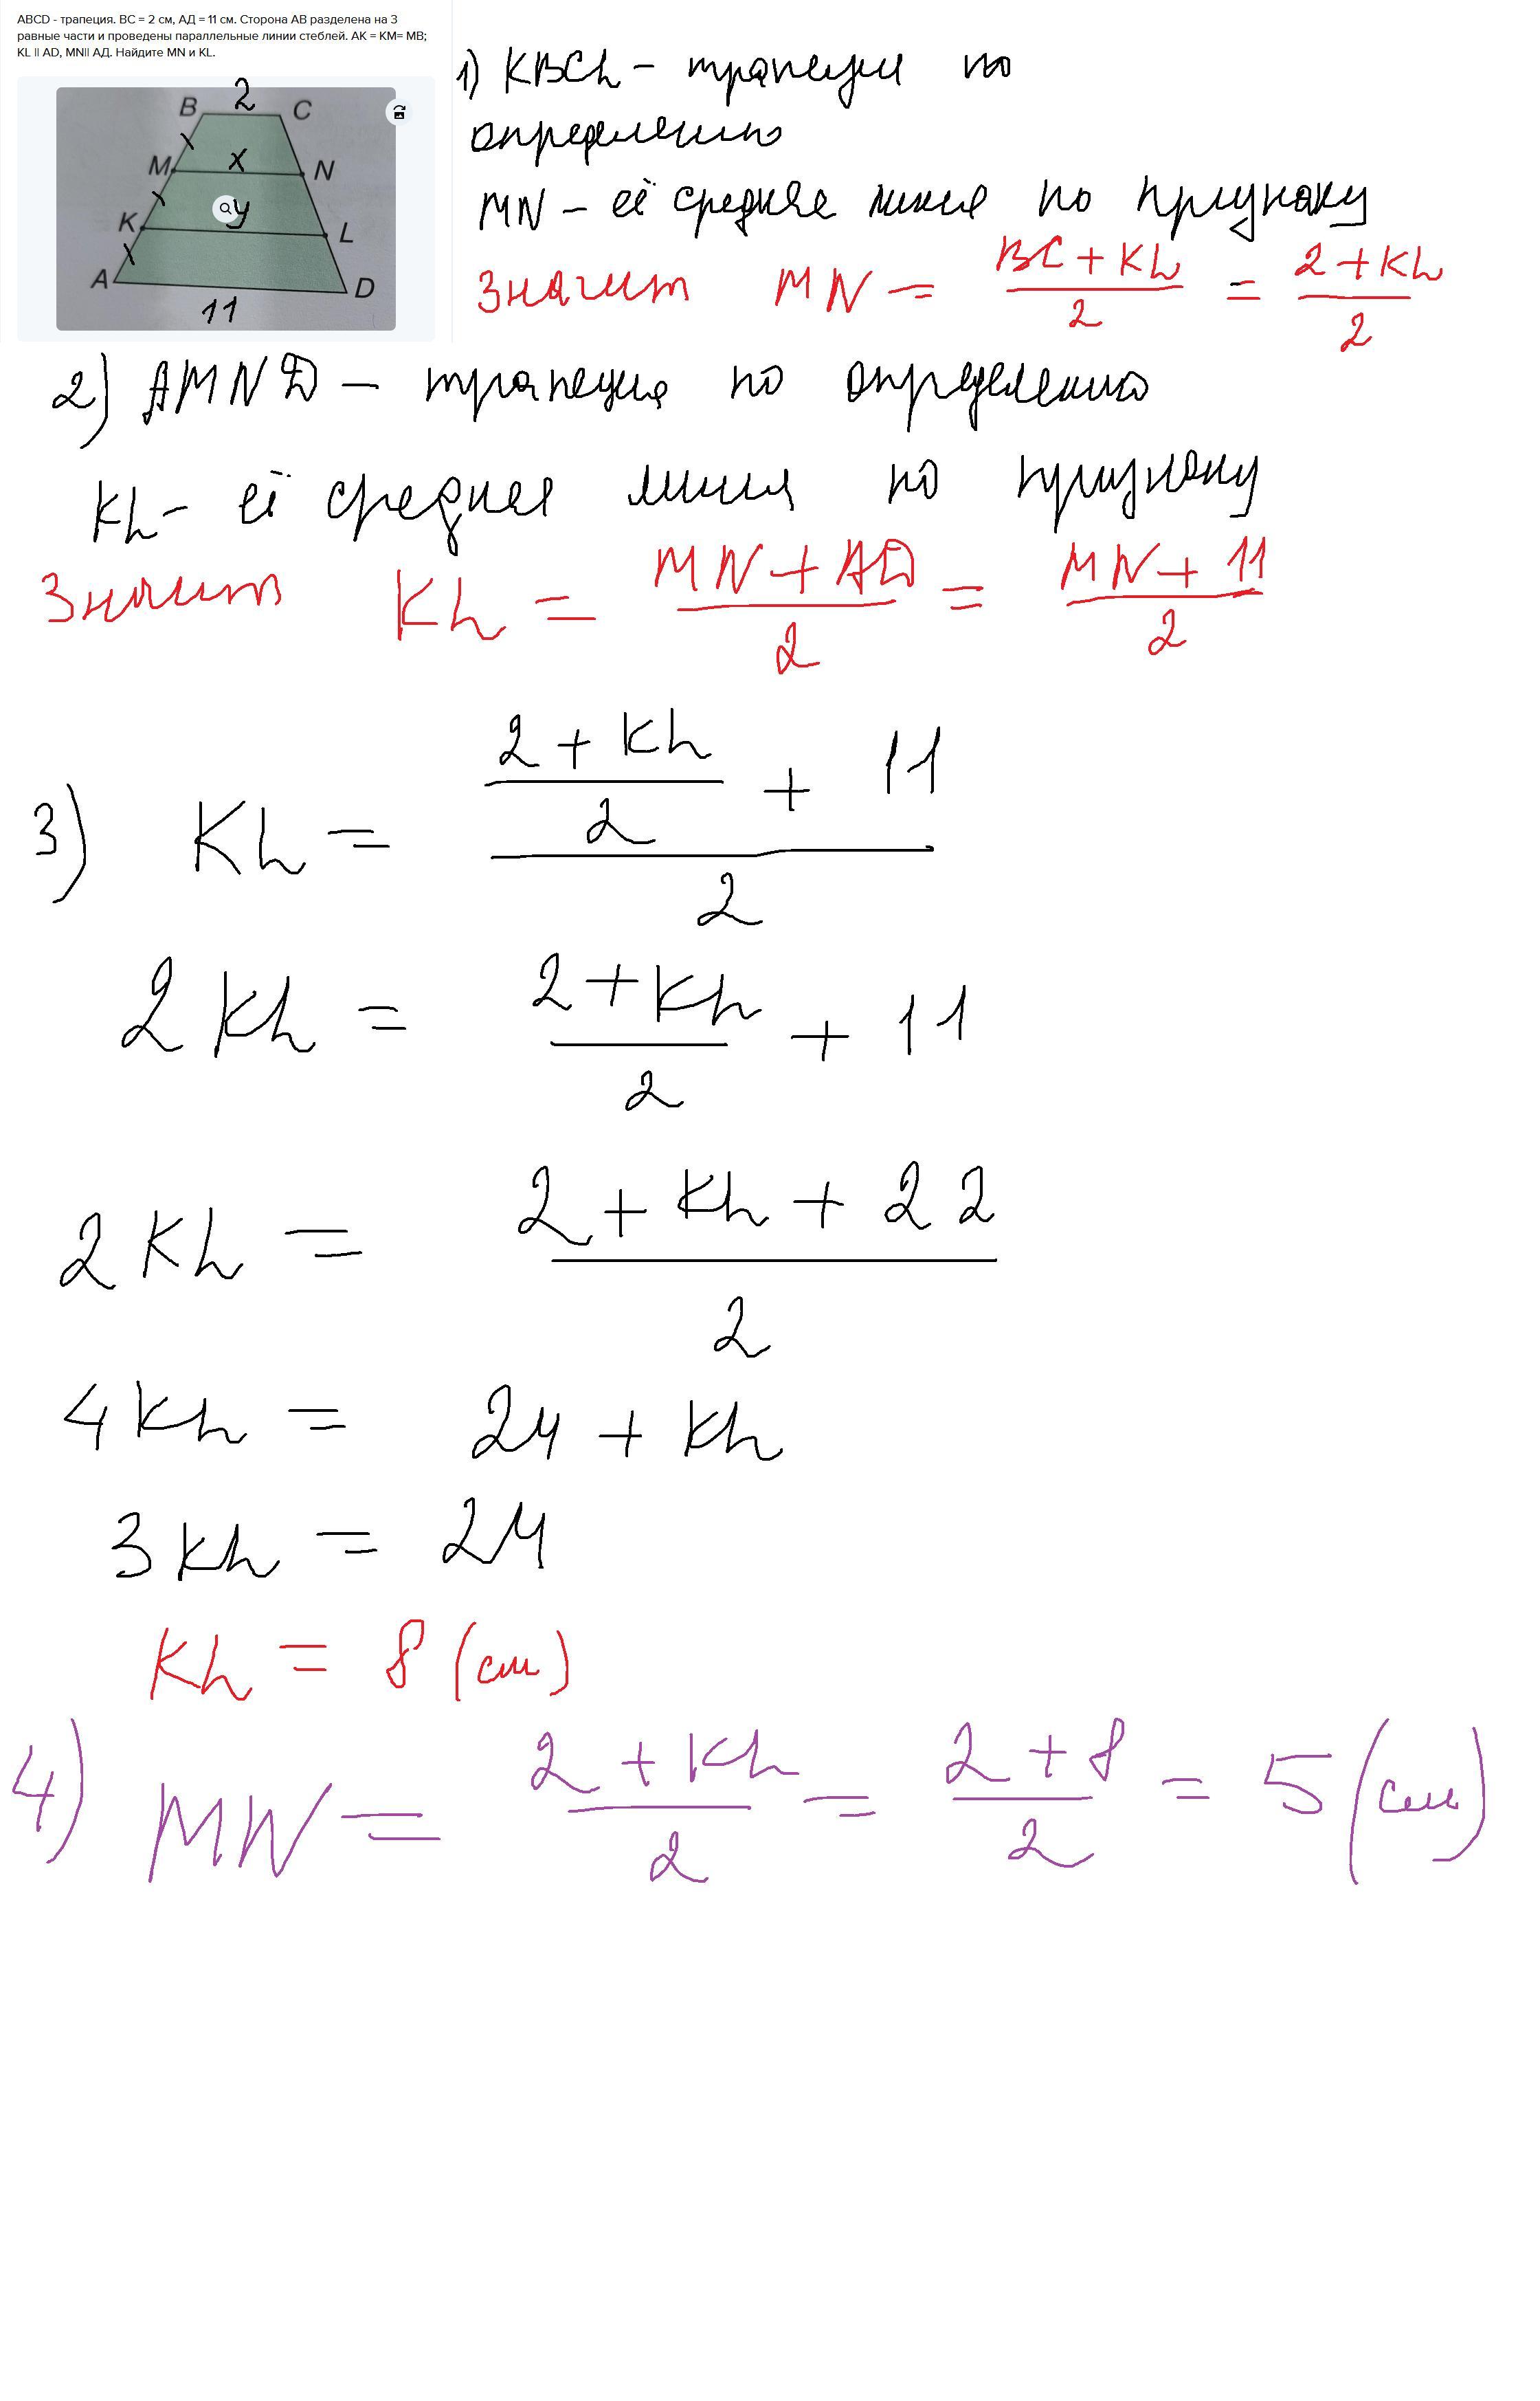 ABCD - трапеция. BC = 2 см, АД = 11 см. Сторона АВ разделена на 3
равные части и проведены параллельные линии стеблей. АК = КМ= МВ;
KL || AD, MN|| АД. Найдите MN и KL.
B 2 C
M x N
K y L
A 11 D
1) KBCL - трапеция по
определению
MN - её средняя линия по признаку
Значит MN = (BC + KL)/2 = (2 + KL)/2
2) AMND - трапеция по определению
KL - её средняя линия по признаку
Значит KL = (MN + AD)/2 = (MN + 11)/2
3) KL = ((2 + KL)/2 + 11)/2
2KL = (2 + KL)/2 + 11
2KL = (2 + KL + 22)/2
4KL = 24 + KL
3KL = 24
KL = 8 (см)
4) MN = (2 + KL)/2 = (2 + 8)/2 = 5 (см)